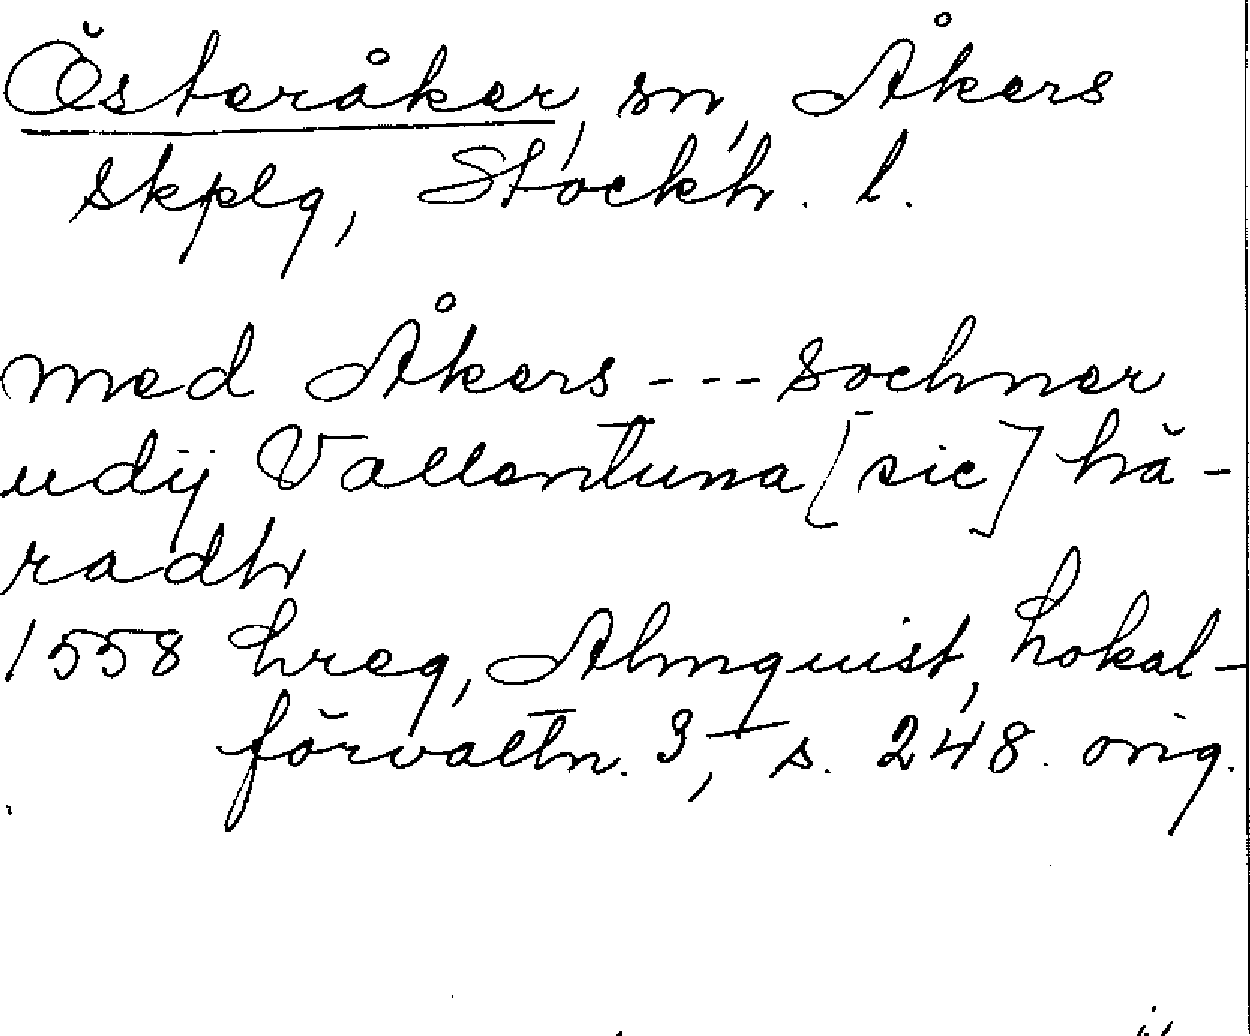 Österåker, sn, Åkers
skplg, Stockh. l.
med Åkers --- sochner
udij Vallentuna [sic] hä-
radh
1558 hreg, Almquist, Lokal-
förvaltn. 3, s. 248. orig.